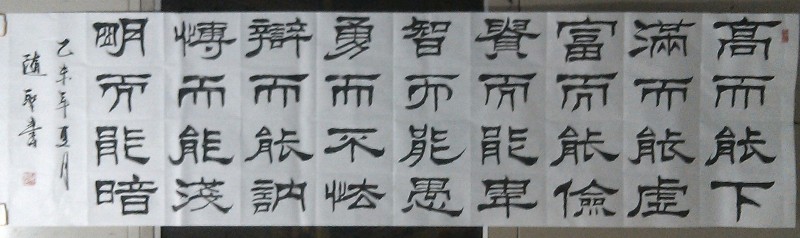 高而能下
滿而能虛
富而能儉
貴而能卑
智而能愚
勇而不怯
辯而能訥
愽而能淺
眀而能暗
乙未年夏月